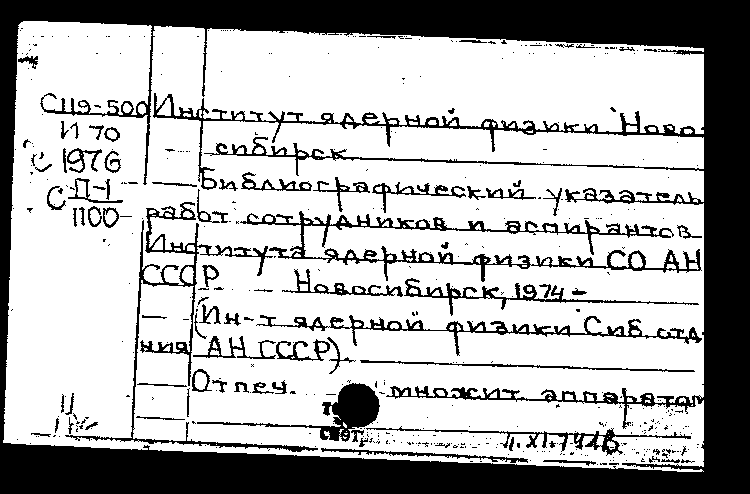 С119-500 Институт ядерной физики Ново-
И 70
сибирск.
С 1976
Библиографический указатель
С П-1
1100
работ сотрудников и аспирантов
Института ядерной физики СО АН
СССР. Новосибирск, 1974-
(Ин-т ядерной физики Сиб. отд-
ния АН СССР).
Отпеч. множит. аппаратом